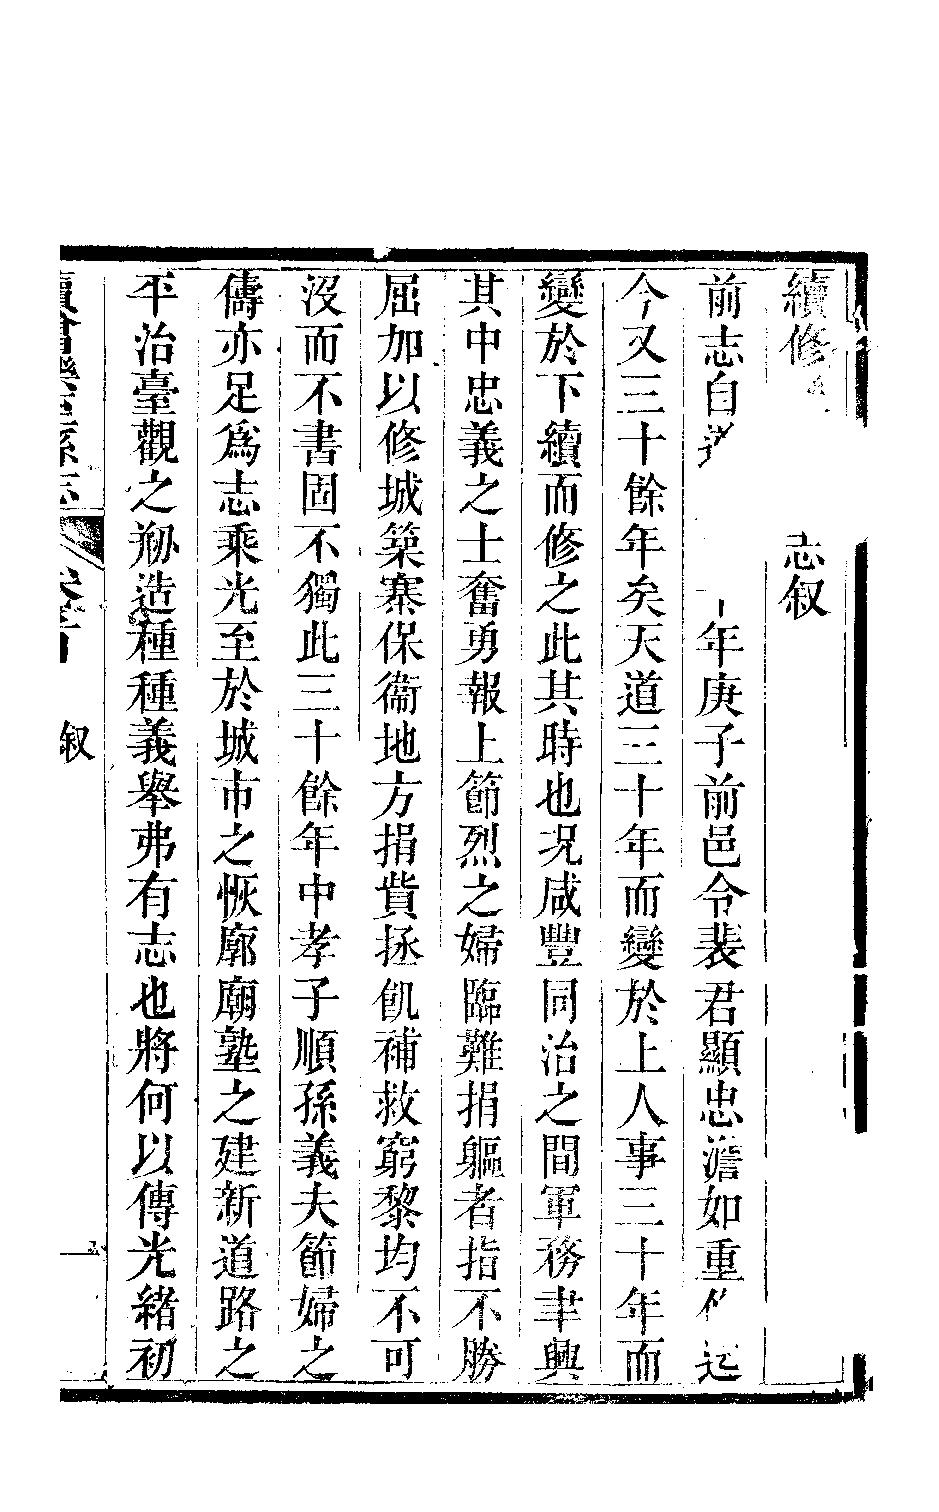 續修志叙
前志自年庚子前邑令裴君顯忠澹如重迄
今又三十餘年矣天道三十年而變於上人事三十年而
變於下續而修之此其時也况咸豐同治之間軍務聿興
其中忠義之士奮勇報上節烈之婦臨難捐軀者指不勝
屈加以修城築寨保衞地方捐貲拯飢補救窮黎均不可
沒而不書固不獨此三十餘年中孝子順孫義夫節婦之
儔亦足爲志乘光至於城市之恢廓廟塾之建新道路之
平治臺觀之剏造種種義舉弗有志也將何以傳光緒初
續會樂至縣志 卷首 叙 一